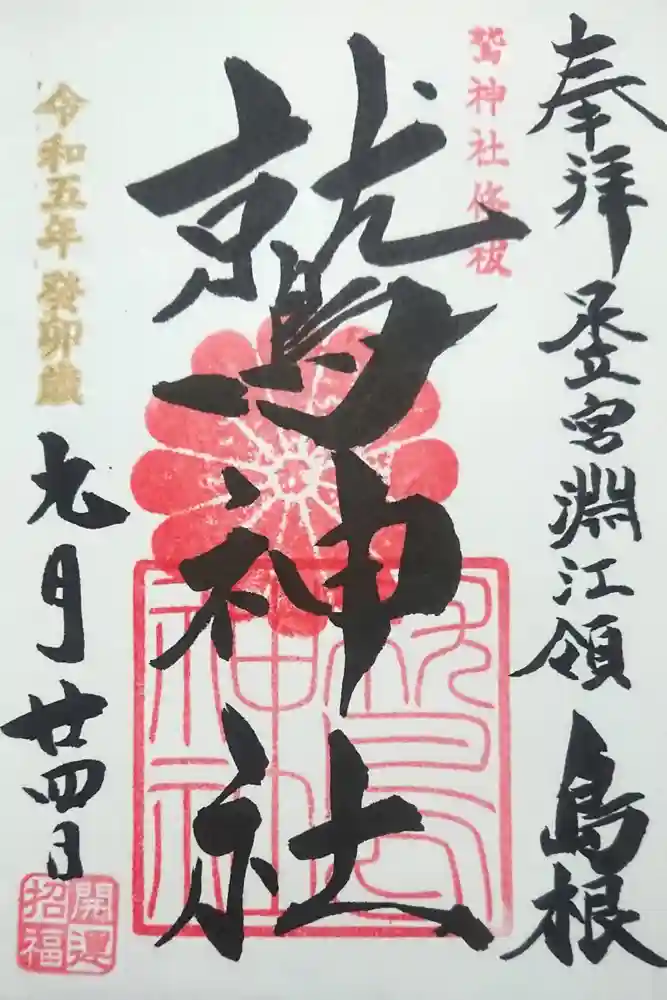 奉拝
足立宮淵江領 島根
鷲神社修祓
鷲神社
鷲神社
令和五年癸卯歳
九月廿四日
開運
招福